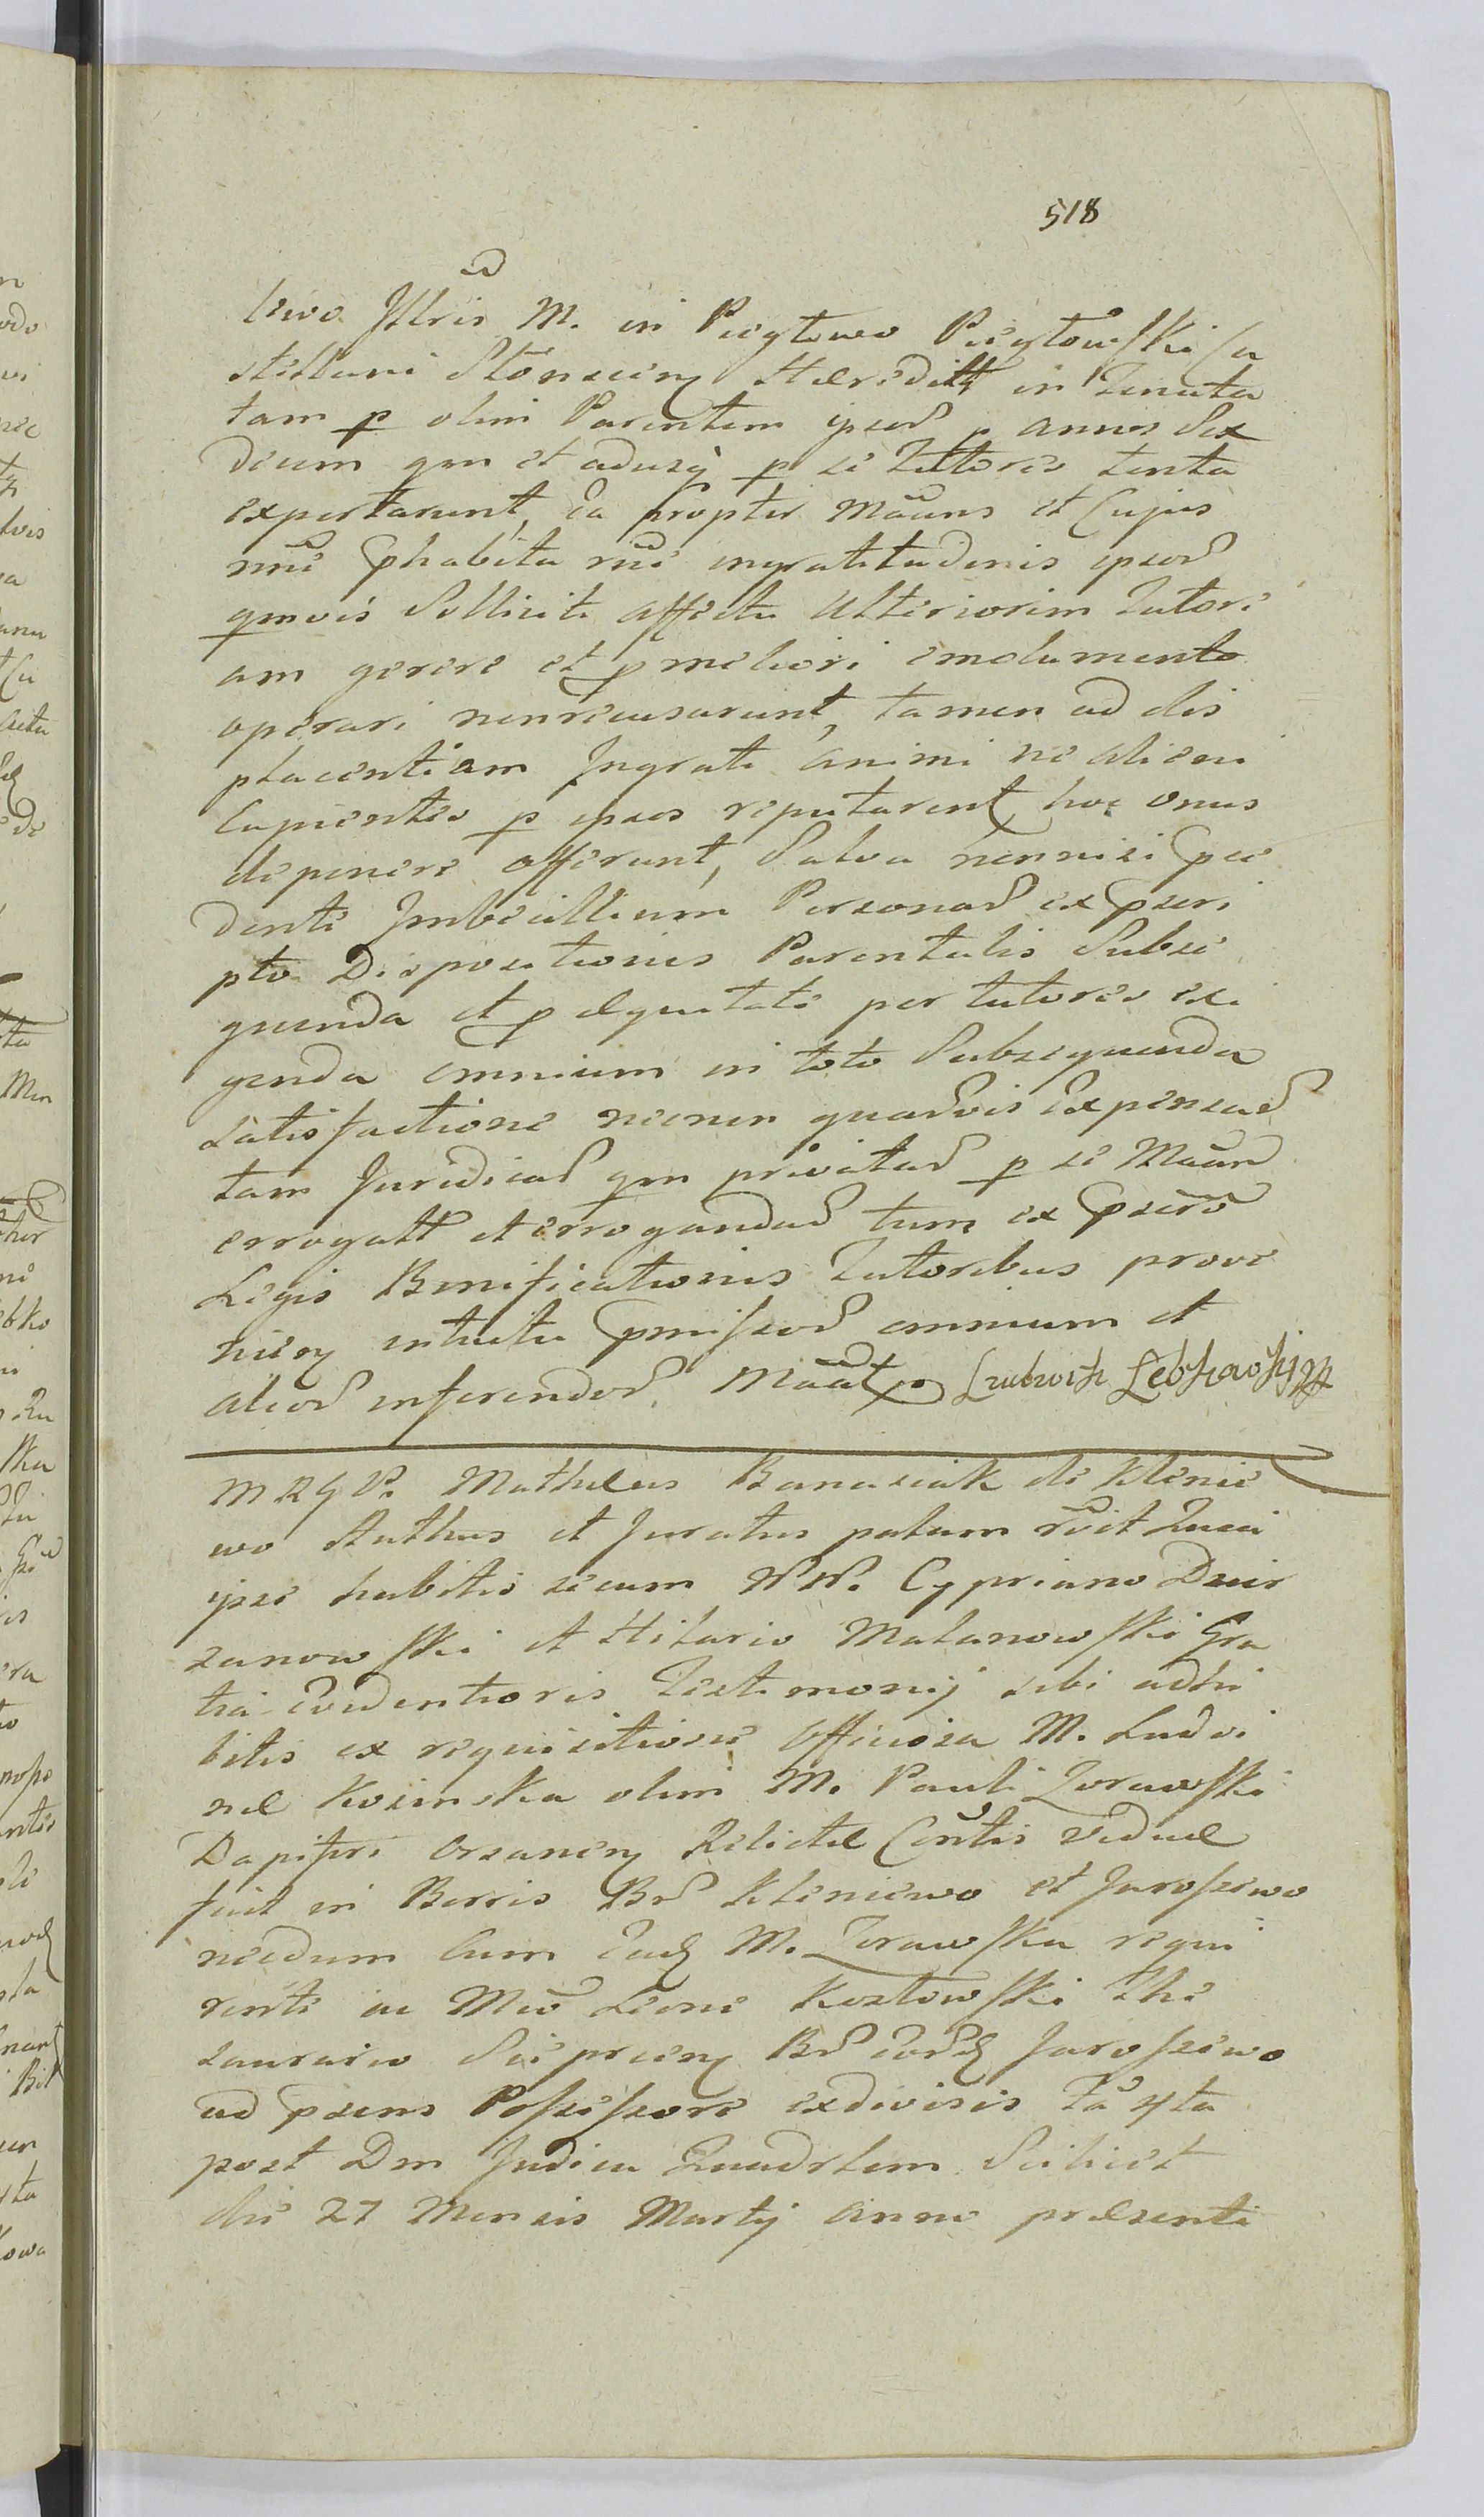 518
Illris M. in Pieglowo Pieglowski Ca
stellani Słonscien Haeredit in Tenuta
tam p olim Parentem ipsor p annos Sex
decim qm et adusq p se Tutores tenta
expertarunt, Ea propter Mauns et Cujus
nne phabita rne ingratitudinis ipsor
qmvis Solliciti affectu Ulteriorem Tutori
am gerere et p meliori emolumento
operari nonrecusarunt, tamen ad dis
placentiam Ingrati animi ne alieni
Cupientes p ipsos reputarent hoc onus
deponere offerunt, Salva nonnisi pce
denti Imbecillium Personar ex pscri
pto Dispositionis Parentalis Subse
quenda et p aequitate per tutores exi
genda omnium in toto Subsequenda
satisfactione necnon quarvis Expensar
tam Juridicar qm privatar p se Maun
errogatt et errogandar tum ex pscro
Legis Bonificationis Tutoribus prove
nien intuitu pmissor omnium et
alior inferendor. Ludwik Łebkowski
M R G P. Mathaeus Banasiak de Klenie
wo Authus et Juratus palam rcit Quia
ipse habitis secum NN. Cypriano Dzier
zanowski et Hilario Malanowski Gra
tia Evidentioris Testimonij sibi adhi
bitis ex requisitione Officiosa M. Ludvi
nae Kosinska olim M. Pauli Zorawski
Dapiferi Orsanen Relictae Contis Viduae
fuit in Bonis Br Kleniewo et Jaroszewo
needum Cum Eadq M. Zorawska requi
renti ac Mco Leone Kozlowski The
saurario Sieprcien Br eordq Jaroszewo
ad psens Possessore exdivisis
post Dm Judica Quadrlem Scilicet
die 27 Mensis Martij anno praesenti